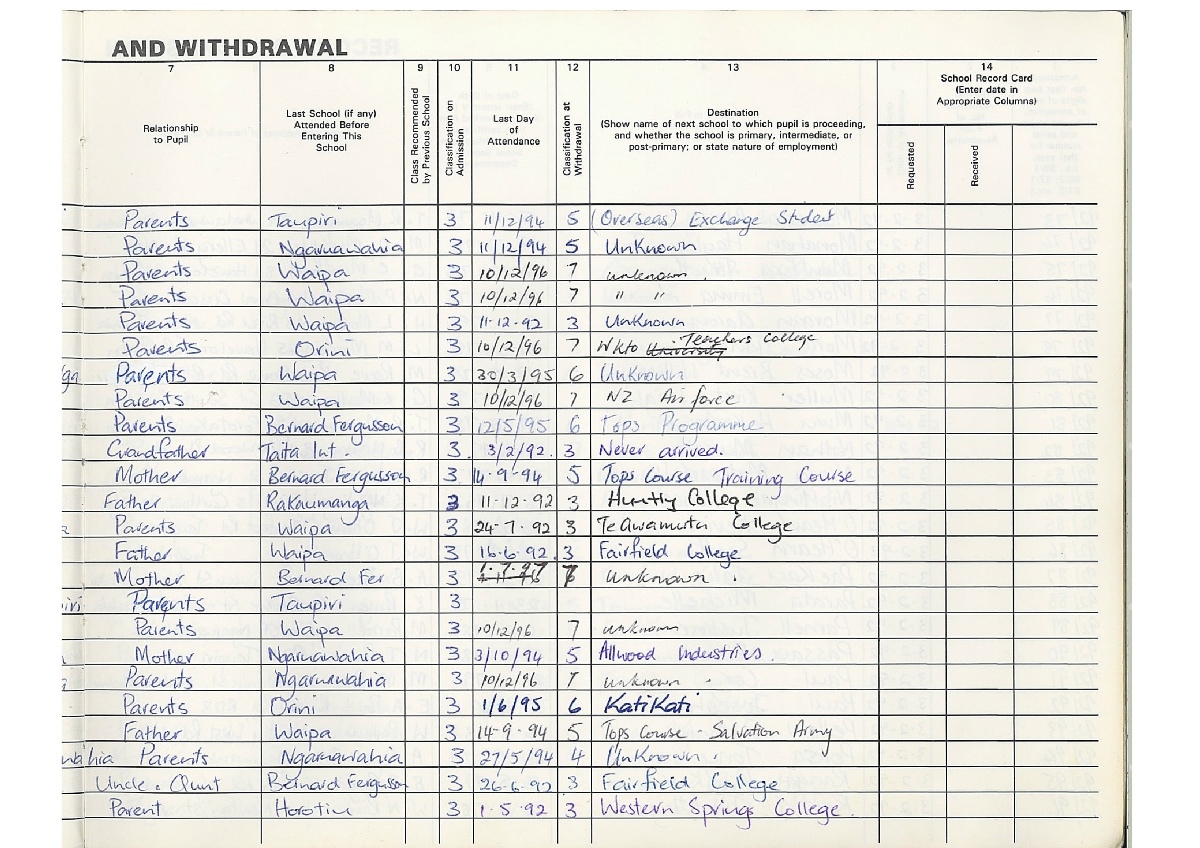 AND WITHDRAWAL
7 8 9 10 11 12 13 14
Relationship to Pupil
Last School (if any) Attended Before Entering This School
Class Recommended by Previous School
Classification on Admission
Last Day of Attendance
Classification at Withdrawal
Destination
(Show name of next school to which pupil is proceeding, and whether the school is primary, intermediate, or post-primary; or state nature of employment)
School Record Card
(Enter date in Appropriate Columns)
Requested
Received
Parents Taupiri 3 11/12/94 5 (Overseas) Exchange Student
Parents Ngaruawahia 3 11/12/94 5 UnKnown
Parents Waipa 3 10/12/96 7 unknown .
Parents Waipa 3 10/12/96 7 " "
Parents Waipa 3 11-12-92 3 UnKnown
Parents Orini 3 10/12/96 7 Wkto University Teachers College
Parents Waipa 3 30/3/95 6 UnKnown
Parents Waipa 3 10/12/96 7 NZ Air force
Parents Bernard Fergusson 3 12/5/95 6 Tops Programme
Grandfather Taita Int. 3. 3/2/92. 3 Never arrived.
Mother Bernard Fergusson 3 14-9-94 5 Tops Course Training Course
Father Rakaumanga 3 11-12-92 3 Huntly College
Parents Waipa 3 24-7-92 3 Te Awamutu College
Father Waipa 3 16.6.92. 3 Fairfield College
Mother Bernard Fer 3 1.7.97 unknown .
Parents Taupiri 3
Parents Waipa 3 10/12/96 7 unknown
Mother Ngaruawahia 3 3/10/94 5 Allwood Industries.
Parents Ngaruawahia 3 10/12/96 7 unknown .
Parents Orini 3 1/6/95 6 KatiKati
Father Waipa 3 14-9-94 5 Tops Course - Salvation Army
wahia Parents Ngaruawahia 3 27/5/94 4 UnKnown .
Uncle & Aunt Bernard Fergusson 3 26-6-92 3 Fairfield College
Parent Horotiu 3 1.5.92 3 Western Springs College.